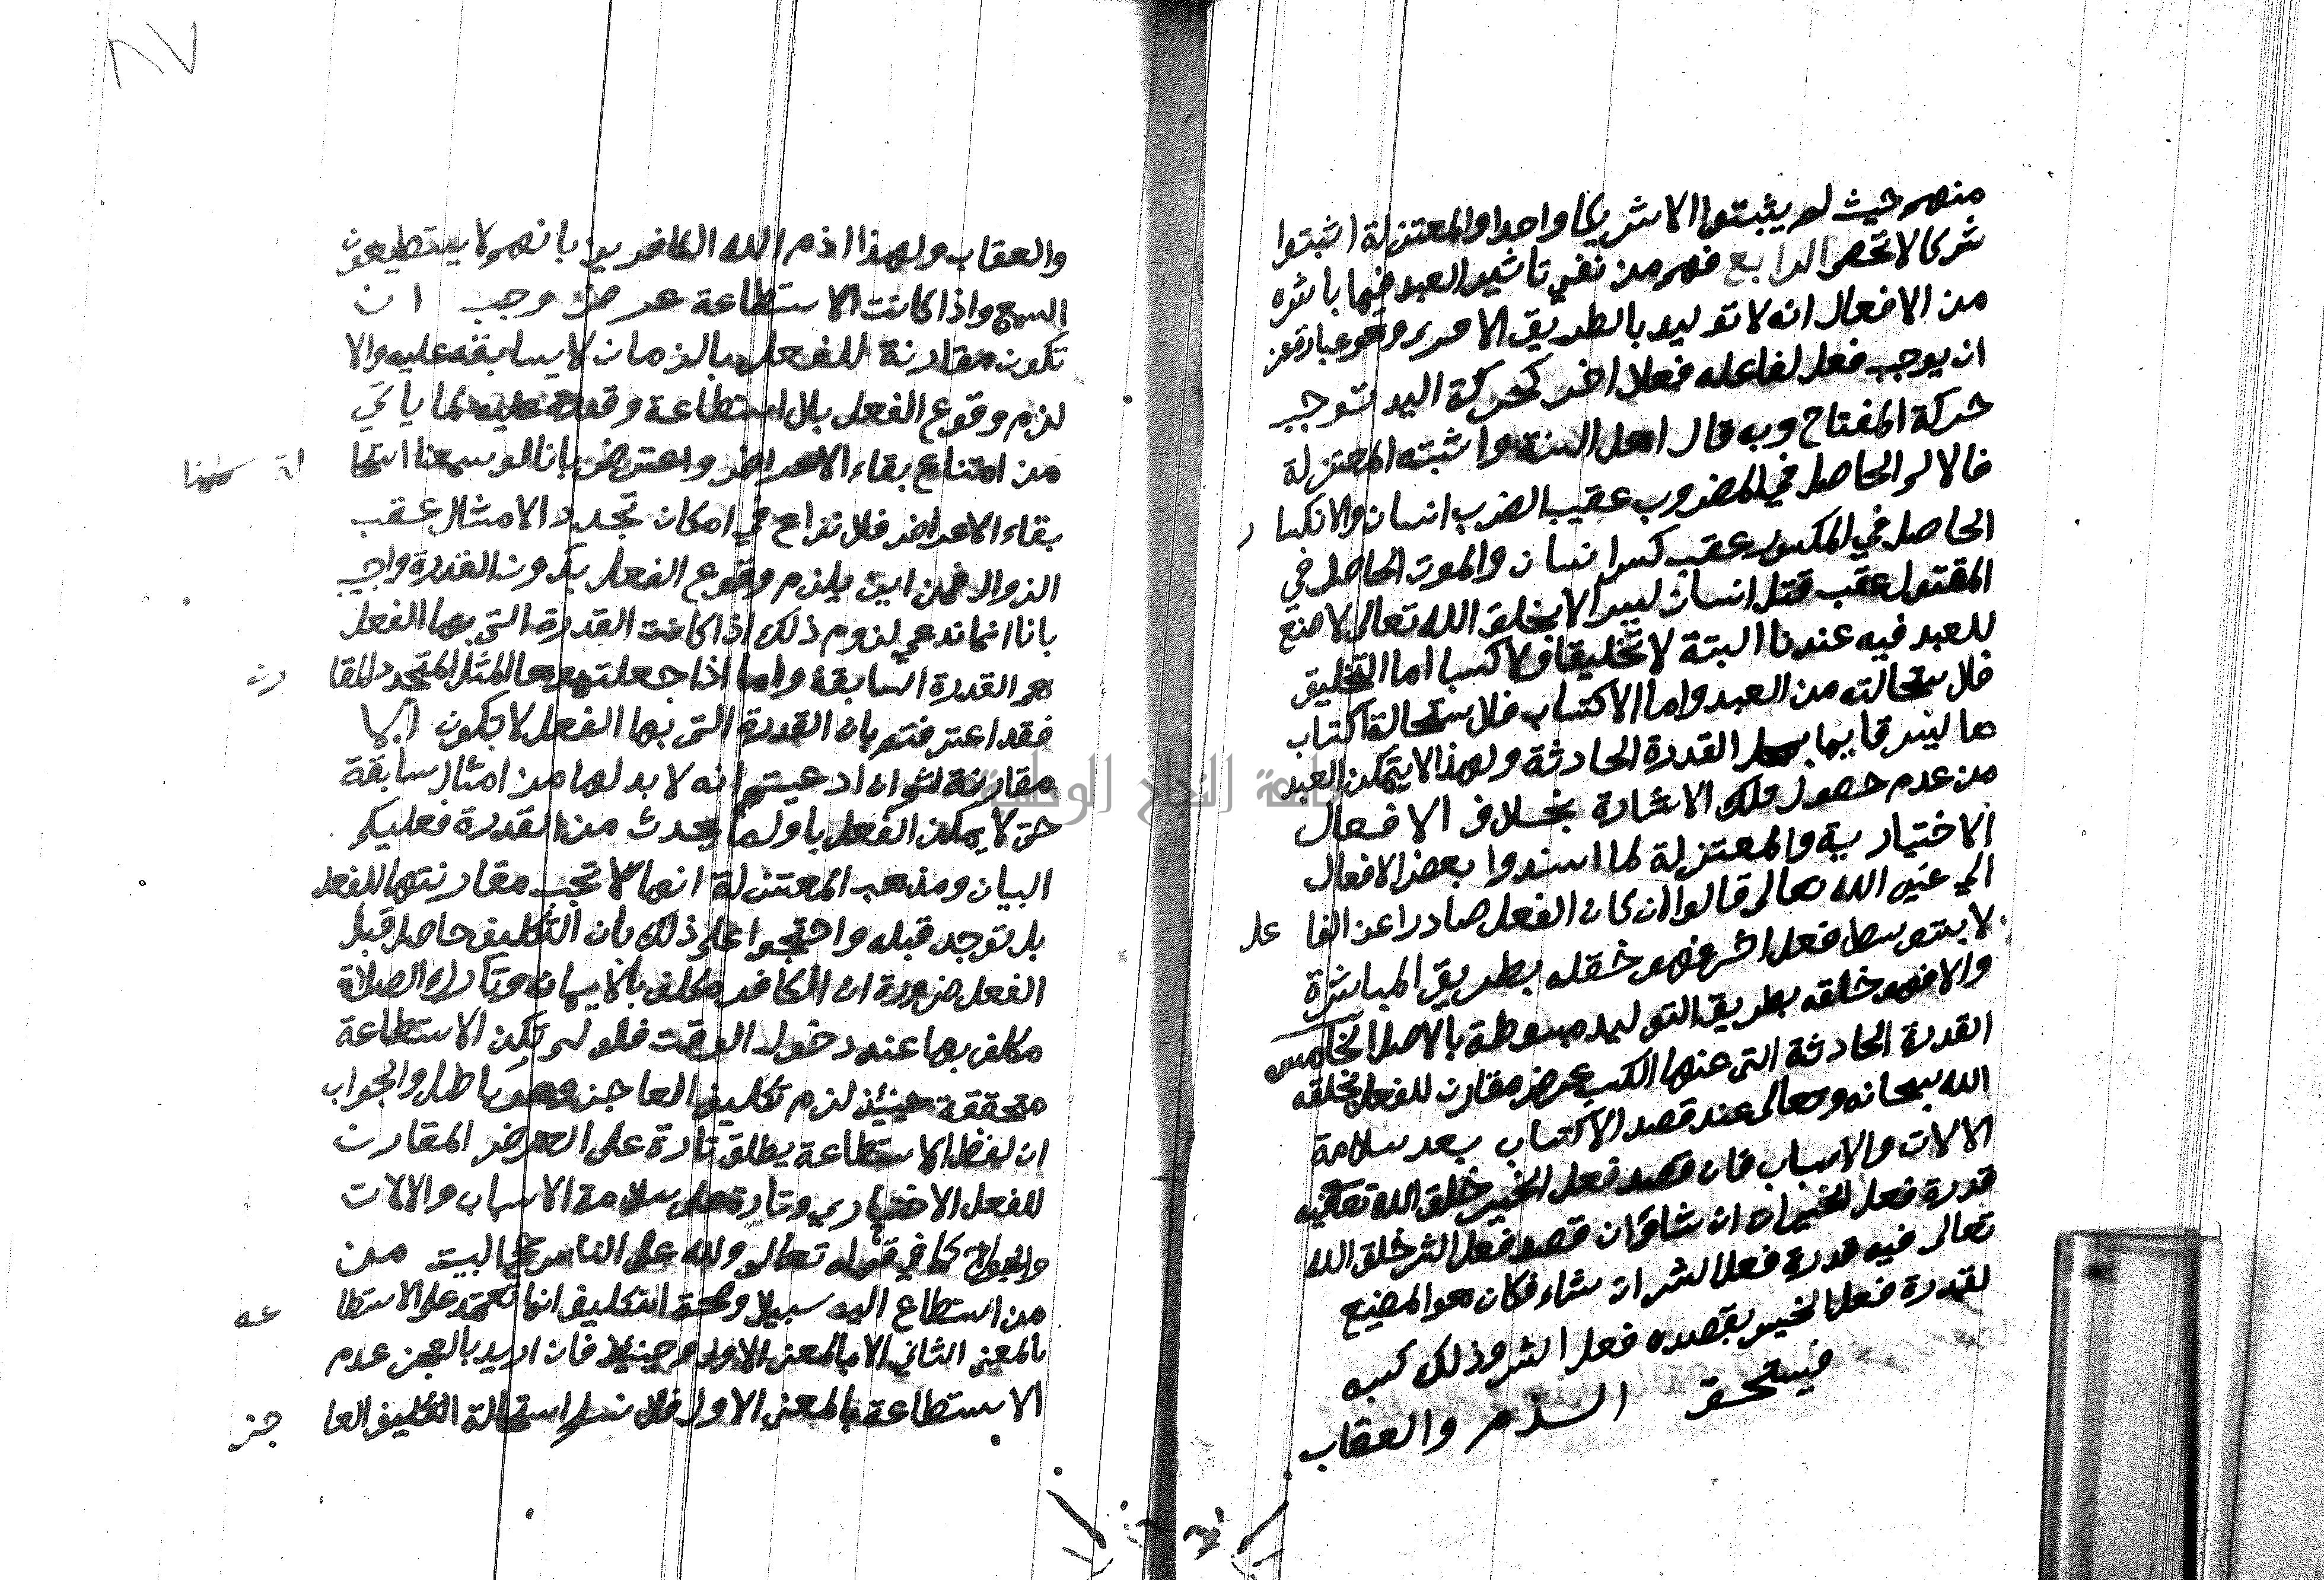 منهم حيث لم يثبتوا الا شريكا واحدا والمعتزلة اثبتوا
شركا لا تحصر الرابع فهم من نفي تاثير العبد فيما باشره
من الافعال انه لا توليد بالطريق الاحرى وهو عبارة عن
ان يوجب فعل لفاعله فعلا اخر كحركة اليد توجب
حركة المفتاح وبه قال اهل السنة واثبته المعتزلة
فالالم الحاصل في المضروب عقيب الضرب انسان والانكسار
الحاصل في المكسور عقب كسر انسان والموت الحاصل في
المقتول عقب قتل انسان ليس الا بخلق الله تعالى لا صنع
للعبد فيه عندنا البتة لا تخليقا ولا كسبا اما التخليق
فلاستحالته من العبد واما الاكتساب فلاستحالة اكتساب
ما ليس قايما بمحل القدرة الحادثة ولهذا لا يتمكن العبد
من عدم حصول تلك الاشارة بخلاف الافعال
الاختيارية والمعتزلة لما اسندوا بعض الافعال
الى غير الله تعالى قالوا ان كان الفعل صادرا عن الفاعل
لا بتوسط فعل اخر فهو خقله بطريق المباشرة
والا فهو خلقه بطريق التوليد مبسوطة بالاصل الخامس
القدرة الحادثة التي عنها الكسب عرض مقارن للفعل يخلقه
الله سبحانه وتعالى عند قصد الاكتساب بعد سلامة
الالات والاسباب فان قصد فعل الخير خلق الله تعالى فيه
قدرة فعل الخير ان شاء وان قصد فعل الشر خلق الله
تعالى فيه قدرة فعل الشر ان شاء فكان هو المضيع
لقدرة فعل الخير بقصده فعل الشر وذلك كسبه
فيستحق الذم والعقاب
والعقاب ولهذا اذم الله الكافرين بانهم لا يستطيعون
السمع واذا كانت الاستطاعة عرض وجب ان
تكون مقارنة للفعل بالزمان لا سابقة عليه والا
لزم وقوع الفعل بلا استطاعة وقدرة عليه لما ياتي
من امتناع بقاء الاعراض واعترض بانا لو سمعنا استحالة
بقاء الاعراض فلا نزاع في امكان تجدد الامثال عقب
الزوال فمن اين يلزم وقوع الفعل بدون القدرة واجيب
بانا انما ندعي لزوم ذلك اذا كانت القدرة التي بها الفعل
هو القدرة السابقة واما اذا جعلتموها المثل المتجدد المقارن
فقد اعترفتم بان القدرة التي بها الفعل لا تكون الا
مقارنة ثم ان ادعيتم انه لا بد لها من امثال سابقة
حتى لا يمكن الفعل باول ما يحدث من القدرة فعليكم
البيان ومذهب المعتزلة انها لا تجب مقارنتها للفعل
بل توجد قبله واحتجوا على ذلك بان التكليف حاصل قبل
الفعل ضرورة ان الكافر مكلف بالايمان وتارك الصلاة
مكلف بها عند دخول الوقت فلو لم تكن الاستطاعة
متحققة حينئذ لزم تكليف العاجز وهو باطل والجواب
ان لفظ الاستطاعة يطلق تارة على العرض المقارن
للفعل الاختياري وتارة على سلامة الاسباب والالات
والجوارح كما في قوله تعالى ولله على الناس حج البيت من
من استطاع اليه سبيلا وصحة التكليف انما تعتمد على الاستطاعه
بالمعنى الثاني لا بالمعنى الاول وحينئذ فان اريد بالعجز عدم
الاستطاعة بالمعنى الاول فلا نسلم استحالة التكليف العاجز